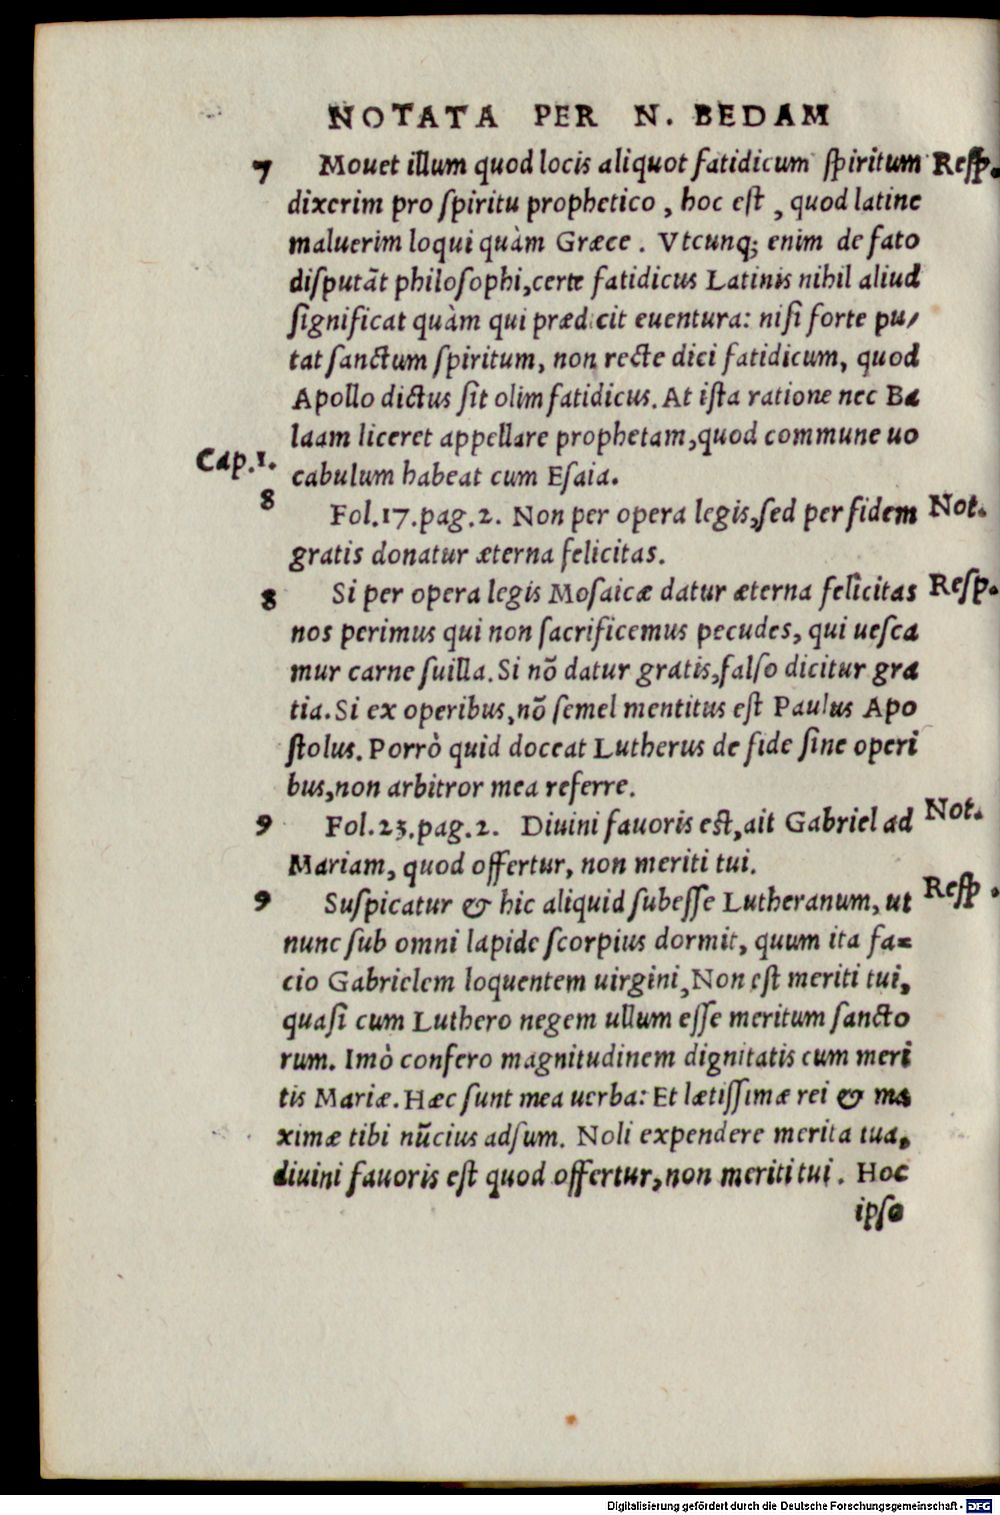 NOTATA PER N. BEDAM
7 Mouet illum quod locis aliquot fatidicum ſpiritum Reſp.
dixerim pro ſpiritu prophetico, hoc eſt, quod latine
maluerim loqui quàm Græce. Vtcunq; enim de fato
diſputāt philoſophi, certe fatidicus Latinis nihil aliud
ſignificat quàm qui prædicit euentura: niſi forte pu-
tat ſanctum ſpiritum, non recte dici fatidicum, quod
Apollo dictus ſit olim fatidicus. At iſta ratione nec Ba
laam liceret appellare prophetam, quod commune uo
Cap.1.
cabulum habeat cum Eſaia.
8 Fol.17.pag.2. Non per opera legis, ſed per fidem Not.
gratis donatur æterna felicitas.
8 Si per opera legis Moſaicæ datur æterna felicitas Reſp.
nos perimus qui non ſacrificemus pecudes, qui ueſca
mur carne ſuilla. Si nō datur gratis, falſo dicitur gra
tia. Si ex operibus, nō ſemel mentitus eſt Paulus Apo
ſtolus. Porrò quid doceat Lutherus de fide ſine operi
bus, non arbitror mea referre.
9 Fol.23.pag.2. Diuini fauoris eſt, ait Gabriel ad Not.
Mariam, quod offertur, non meriti tui.
9 Suſpicatur & hic aliquid ſubeſſe Lutheranum, ut Reſp.
nunc ſub omni lapide ſcorpius dormit, quum ita fa=
cio Gabrielem loquentem uirgini, Non eſt meriti tui,
quaſi cum Luthero negem ullum eſſe meritum ſancto
rum. Imò confero magnitudinem dignitatis cum meri
tis Mariæ. Hæc ſunt mea uerba: Et lætiſſimæ rei & ma
ximæ tibi nūcius adſum. Noli expendere merita tua,
diuini fauoris eſt quod offertur, non meriti tui. Hoc
ipſo
Digitalisierung gefördert durch die Deutsche Forschungsgemeinschaft - DFG